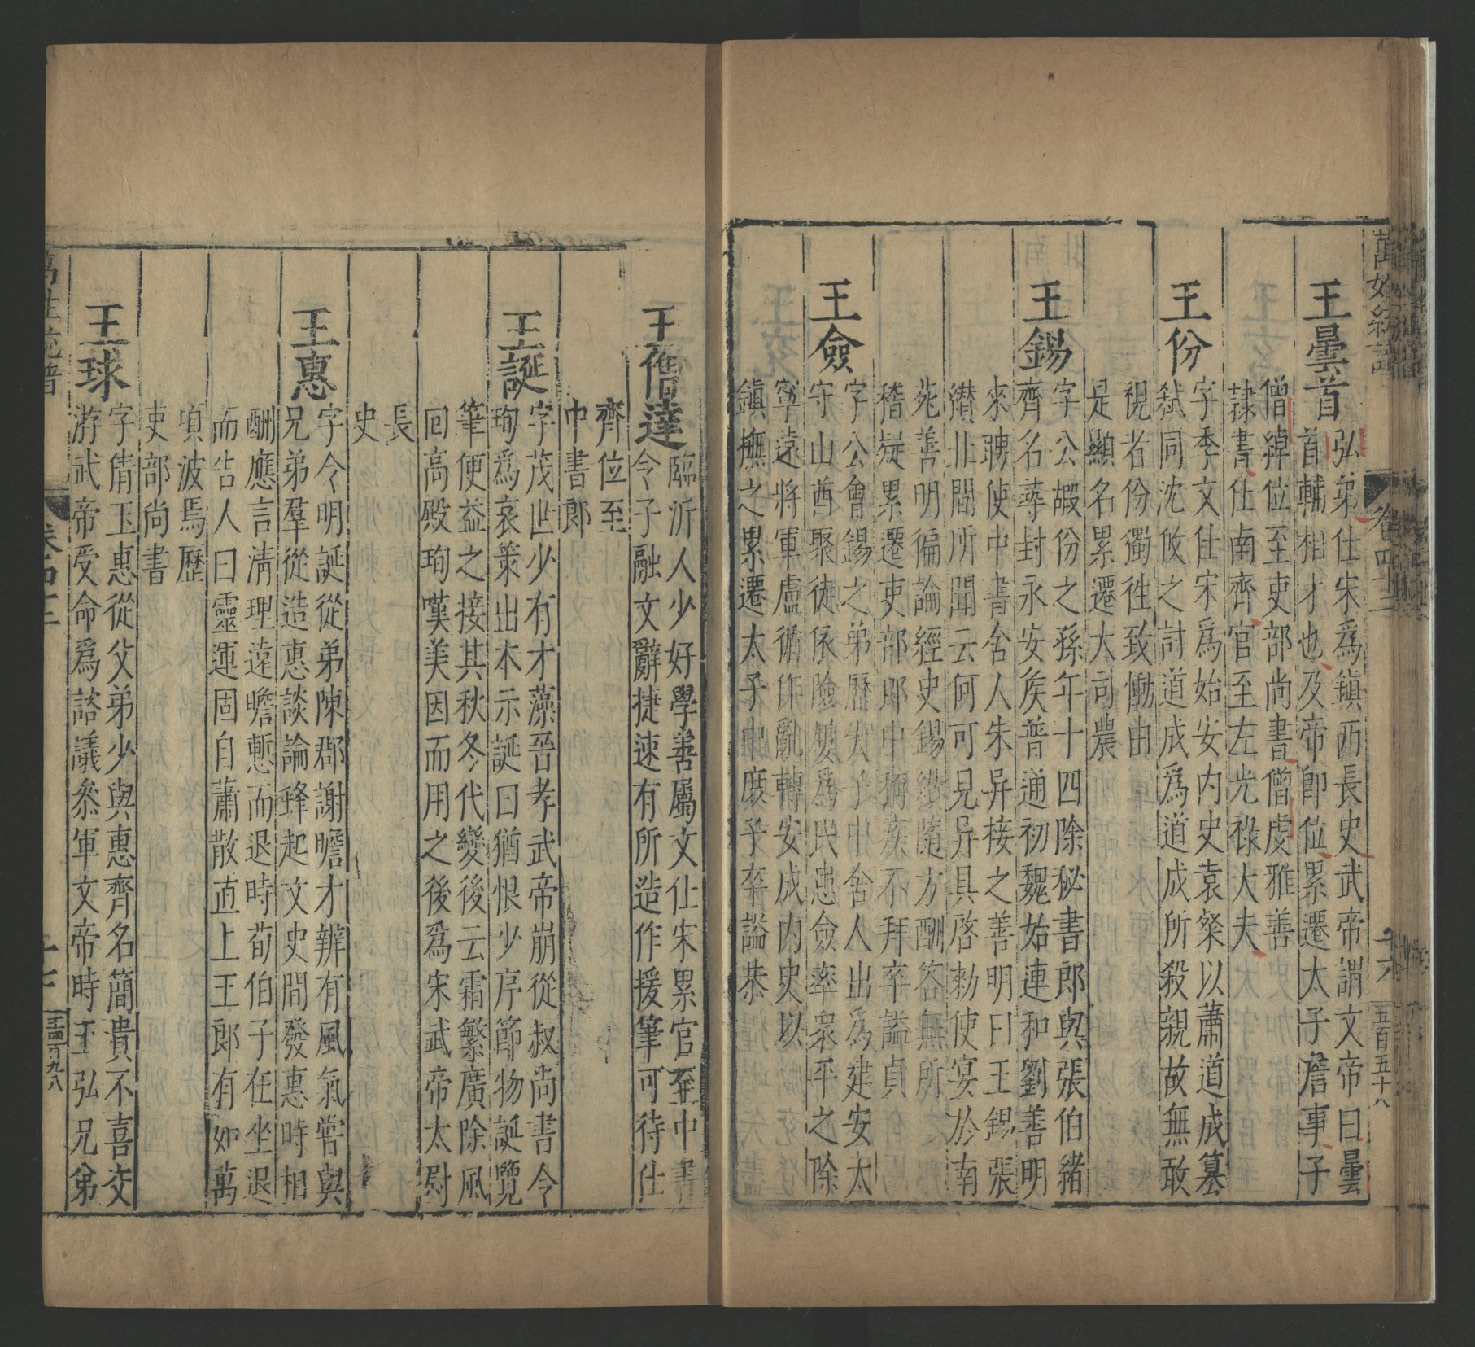 萬姓統譜
卷四十三
十六
五百五十八
王曇首
弘弟仕宋爲鎮西長史武帝謂文帝曰曇
首輔相才也及帝即位累遷太子詹事子
僧綽位至吏部尚書僧虔雅善
隸書仕南齊官至左光祿大夫
王份
字季文仕宋爲始安内史袁粲以蕭道成篡
弑同沈攸之討道成爲道成所殺親故無敢
視者份獨徃致慟由
是顯名累遷大司農
王錫
字公嘏份之孫年十四除秘書郎與張伯緒
齊名葬封永安矦普通初魏始連和劉善明
來聘使中書舍人朱异接之善明曰王錫張
纉北間所聞云何可見异具啓勑使宴於南
苑善明徧論經史錫纉隨方酬答無所
稽疑累遷吏部郎中稱疾不拜卒謚貞
王僉
字公會錫之弟歷太子中舍人出爲建安太
守山酋聚徒依險爲民患僉率衆平之除
寧遠將軍盧循作亂轉安成内史以
鎮撫之累遷太子中庶子卒謚恭
王僧達
臨沂人少好學善屬文仕宋累官至中書
令子融文辭捷速有所造作援筆可待仕
齊位至
中書郎
王誕
字茂世少有才藻晉孝武帝崩從叔尚書令
珣爲哀策出本示誕曰猶恨少序節物誕覽
筆便益之接其秋冬代變後云霜繁廣除風
回高殿珣嘆美因而用之後爲宋武帝太尉
長
史
王惠
字令明誕從弟陳郡謝瞻才辨有風氣嘗與
兄弟羣從造惠談論鋒起文史間發惠時相
酬應言清理遠瞻慙而退時荀伯子在坐退
而告人曰靈運固自蕭散直上王郎有如萬
頃波焉歷
吏部尚書
王球
字蒨玉惠從父弟少與惠齊名簡貴不喜交
游武帝受命爲諮議叅軍文帝時王弘兄弟
萬姓統譜
卷四十三
十七